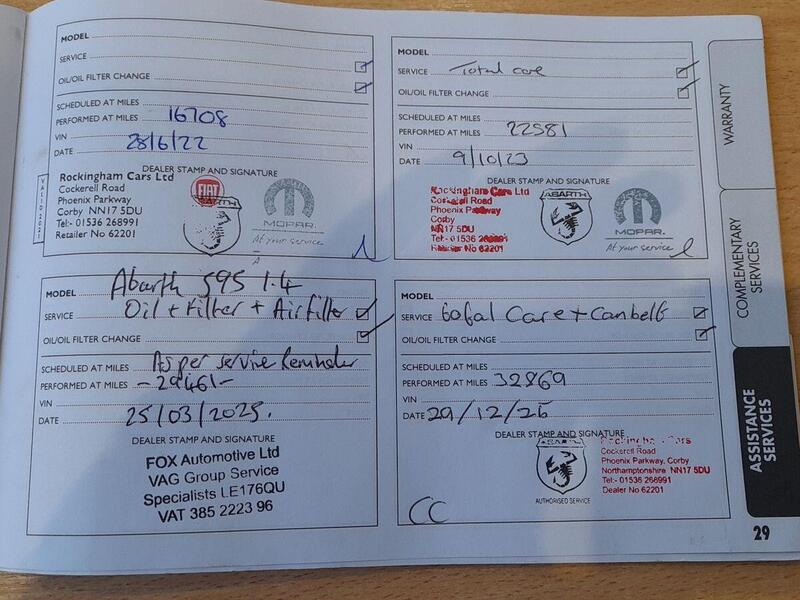 MODEL
SERVICE
OIL/OIL FILTER CHANGE
SCHEDULED AT MILES
PERFORMED AT MILES 16708
VIN
DATE 28/6/22
DEALER STAMP AND SIGNATURE
Rockingham Cars Ltd
Cockerell Road
Phoenix Parkway
Corby NN17 5DU
Tel:- 01536 268991
Retailer No 62201
FIAT
ABARTH
MOPAR.
At your service
MODEL
SERVICE Total care
OIL/OIL FILTER CHANGE
SCHEDULED AT MILES
PERFORMED AT MILES 22581
VIN
DATE 9/10/23
DEALER STAMP AND SIGNATURE
Rockingham Cars Ltd
Cockerell Road
Phoenix Parkway
Corby
NN17 5DU
Tel:- 01536 268991
Retailer No 62201
ABARTH
MOPAR.
At your service
MODEL Abarth 595 1.4
SERVICE Oil + Filter + Air filter
OIL/OIL FILTER CHANGE
SCHEDULED AT MILES As per service Reminder
PERFORMED AT MILES - 29461 -
VIN
DATE 25/03/2025.
DEALER STAMP AND SIGNATURE
FOX Automotive Ltd
VAG Group Service
Specialists LE176QU
VAT 385 2223 96
MODEL
SERVICE total Care + Cambelt
OIL/OIL FILTER CHANGE
SCHEDULED AT MILES
PERFORMED AT MILES 32869
VIN
DATE 29/12/25
DEALER STAMP AND SIGNATURE
ABARTH
AUTHORISED SERVICE
Rockingham Cars
Cockerell Road
Phoenix Parkway, Corby
Northamptonshire NN17 5DU
Tel:- 01536 268991
Dealer No 62201
CC
WARRANTY
COMPLEMENTARY
SERVICES
ASSISTANCE
SERVICES
29